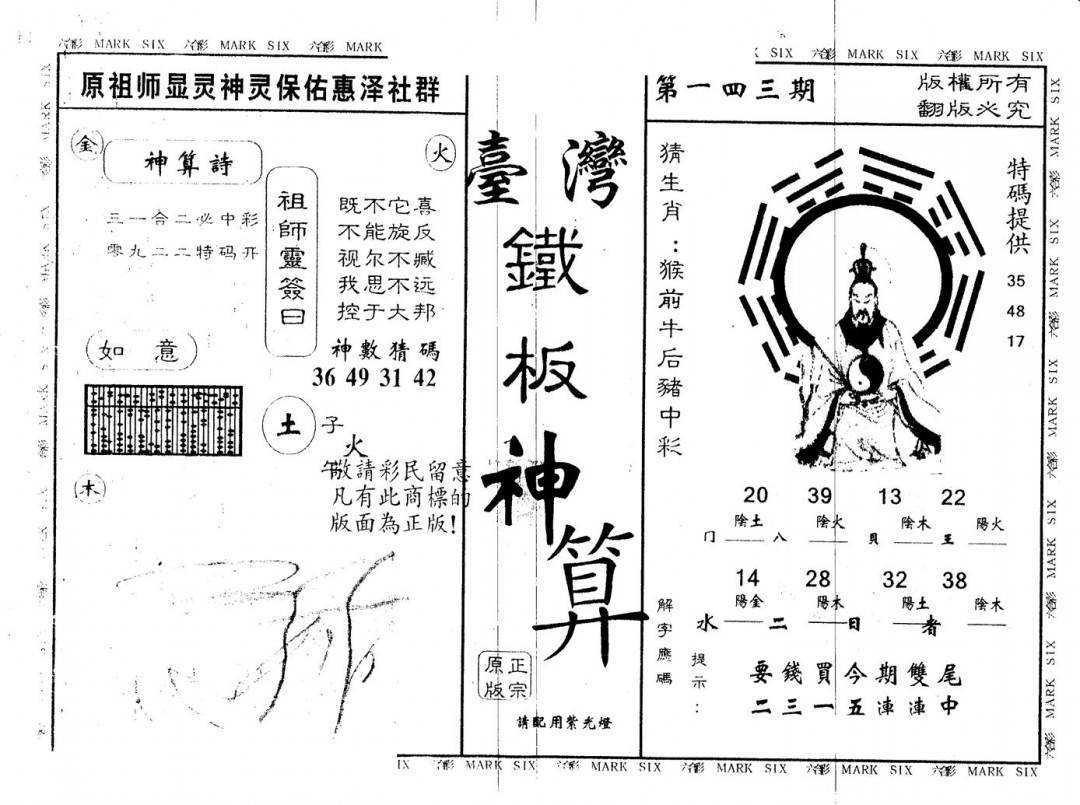 六合彩 MARK SIX 六合彩 MARK SIX 六合彩 MARK
SIX 六合彩 MARK SIX 六合彩 MARK SIX
原祖师显灵神灵保佑惠泽社群
金
神算詩
火
三一合二必中彩
零九二二特码开
祖師靈簽曰
既不它喜
不能旋反
视尔不臧
我思不远
控于大邦
神數猜碼
36 49 31 42
如意
土
子
火
木
敬請彩民留意
凡有此商標的
版面為正版!
臺灣
鐵板神算
正宗
原版
請配用紫光燈
第一四三期
版權所有
翻版必究
猜生肖:猴前牛后豬中彩
特碼提供
35
48
17
20 39 13 22
陰土 陰火 陰木 陽火
门 八 貝 王
14 28 32 38
陽金 陽木 陽土 陰木
水 二 日 者
解字應碼
提示:
要錢買今期雙尾
二三一五連連中
IX 六合彩 MARK SIX 六合彩 MARK SIX 六合彩 MARK SIX 六合彩 MARK SIX 六合彩 MARK SIX